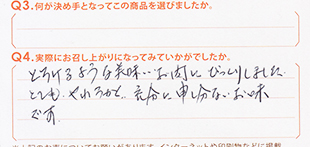 Q3.何が決め手となってこの商品を選びましたか。
Q4.実際にお召し上がりになってみていかがでしたか。
とろけるような美味しいお肉にびっくりしました
とても やわらかく、充分に申し分ないお味
です。